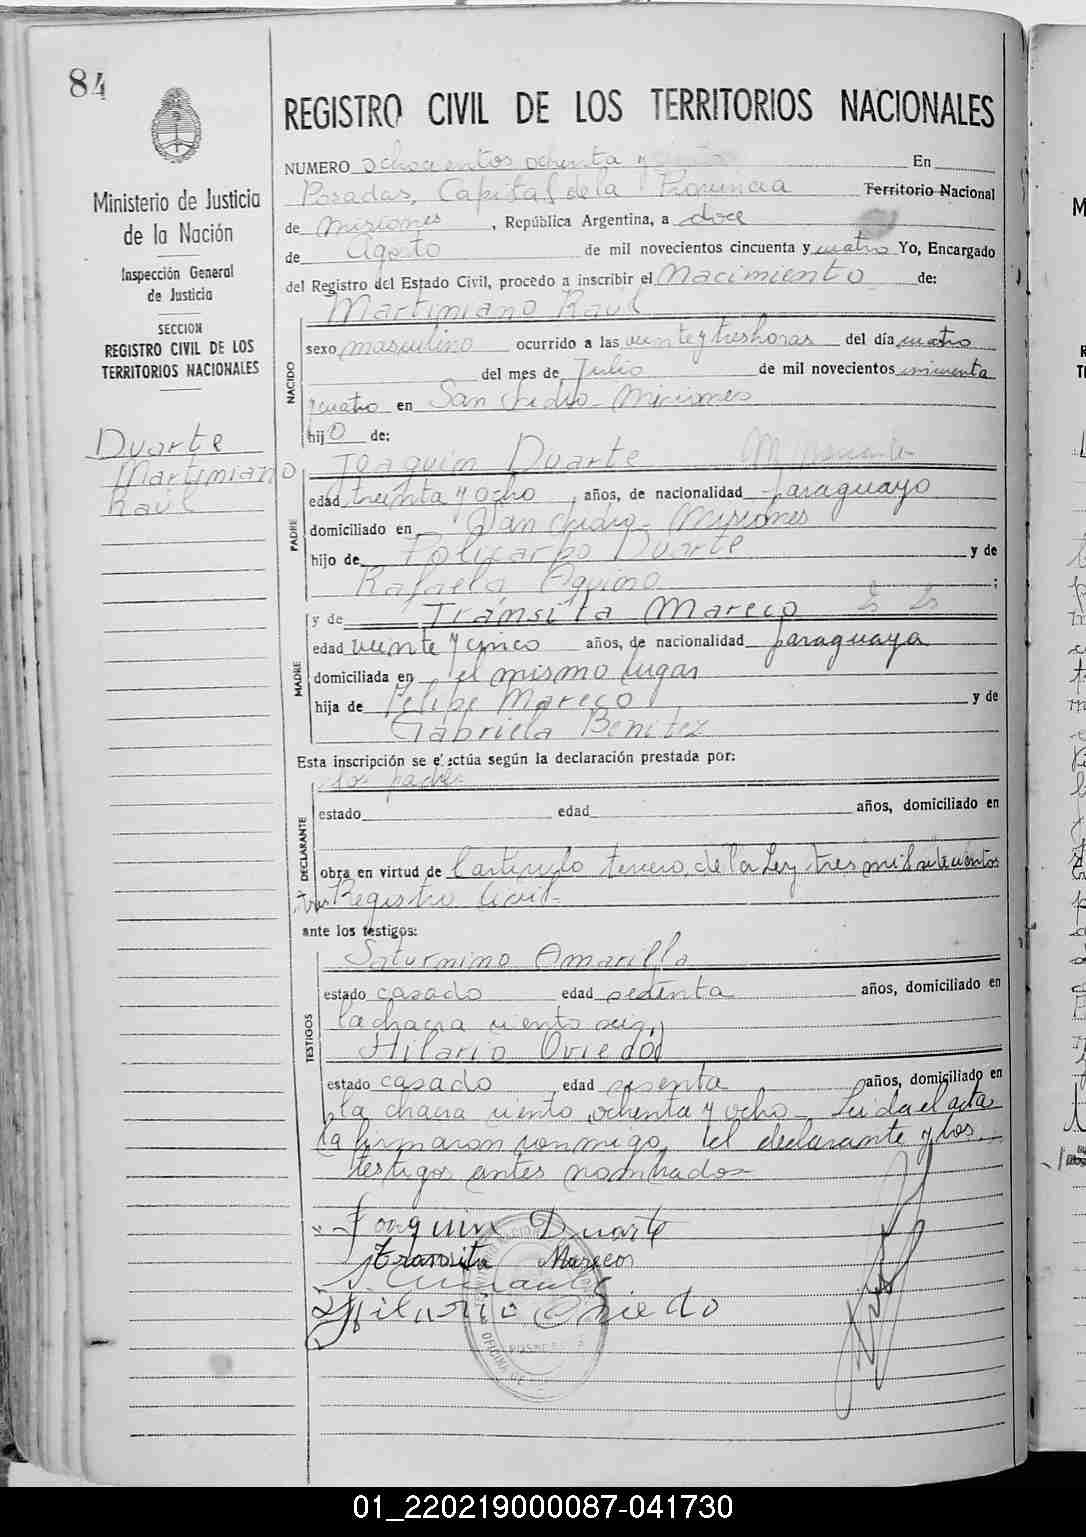 84
REGISTRO CIVIL DE LOS TERRITORIOS NACIONALES
Ministerio de Justicia
de la Nación
Inspección General
de Justicia
SECCION
REGISTRO CIVIL DE LOS
TERRITORIOS NACIONALES
Duarte
Martimiano
Raúl
NUMERO ochocientos ochenta y En
Posadas, Capital de la Provincia Territorio Nacional
de Misiones, República Argentina, a doce
de Agosto de mil novecientos cincuenta y cuatro Yo, Encargado
del Registro del Estado Civil, procedo a inscribir el Nacimiento de:
Martimiano Raúl
NACIDO
sexo masculino ocurrido a las veinte y tres horas del día cuatro
del mes de Julio de mil novecientos cincuenta
y cuatro en San Isidro Misiones
hijo de:
Joaquin Duarte
PADRE
edad treinta y ocho años, de nacionalidad paraguayo
domiciliado en San Isidro - Misiones
hijo de Policarpo Duarte y de
Rafaela Aquino ;
y de Tránsita Mareco
MADRE
edad veinte y cinco años, de nacionalidad paraguaya
domiciliada en el mismo lugar
hija de Felipe Mareco y de
Gabriela Benitez
Esta inscripción se efectúa según la declaración prestada por:
los padres
DECLARANTE
estado edad años, domiciliado en
obra en virtud de l artículo tercero, de la Ley tres mil setecientos
tres Registro Civil-
ante los testigos:
Saturnino Amarilla
TESTIGOS
estado casado edad setenta años, domiciliado en
la chacra ciento seis y
Hilario Oviedo
estado casado edad sesenta años, domiciliado en
la chacra ciento ochenta y ocho - Leida el acta
la firmaron conmigo, el declarante y los
testigos antes nombrados=
Joaquin Duarte
transita Mareco
Hilario Oviedo
OFICINA DE
01_220219000087-041730